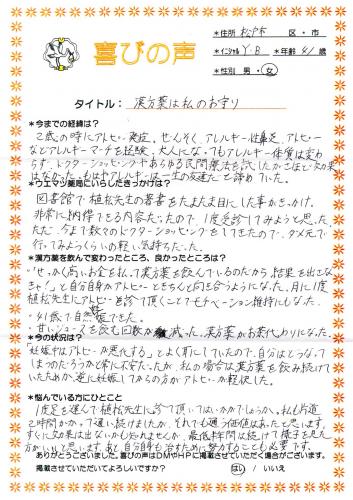 喜びの声
*住所 松戸市 区・市
*イニシャル Y.B *年齢 41 歳
*性別 男・女
タイトル: 漢方薬は私のお守り
*今までの経緯は?
2歳の時にアトピー発症、ぜんそく、アレルギー性鼻炎、アトピー
などアレルギーマーチを経験。大人になってもアレルギー体質は変わ
らず、ドクターショッピングやあらゆる民間療法を試したがさほど効果
はなかった。もはやアレルギーは一生の友達だと諦めていた。
*ウエマツ薬局にいらしたきっかけは?
図書館で植松先生の著書をたまたま目にした事がきっかけ。
非常に納得できる内容だったので、1度受診してみようと思った。
ただ、今まで数々のドクターショッピングをしてきたので、ダメ元で
行ってみようくらいの軽い気持ちだった。
*漢方薬を飲んで変わったところ、良かったところは?
・せっかく高いお金を払って漢方薬を飲んでいるのだから、結果を出さな
きゃ!と自分自身がアトピーときちんと向き合うようになった。月に1度
植松先生にアトピーを診て頂くことでモチベーション維持にもなった。
・41歳で自然妊娠できた。
・甘いジュースを飲む回数が減った。漢方薬がお茶代わりになった。
*今の状況は?
妊娠中はアトピーが悪化する」とよく耳にしていたので、自分はどうなって
しまうのだろうかと常に不安だったが、私の場合は漢方薬を飲み続けて
いたためか、逆に妊娠してからの方がアトピーが軽快した。
*悩んでいる方にひとこと
1度足を運んで植松先生に診て頂いてはいかがでしょうか。私も片道
2時間かかって通い続けましたが、それでも通う価値はあったと思います。
すぐに効果は出ないかも知れませんが、最低半年間は続けて様子を見た
方がいいと思います。私自身も治すために努力することも必要です。
ありがとうございました。喜びの声はDMやHPに掲載させていただく場合がございます。
掲載させていただいてよろしいですか? はい / いいえ